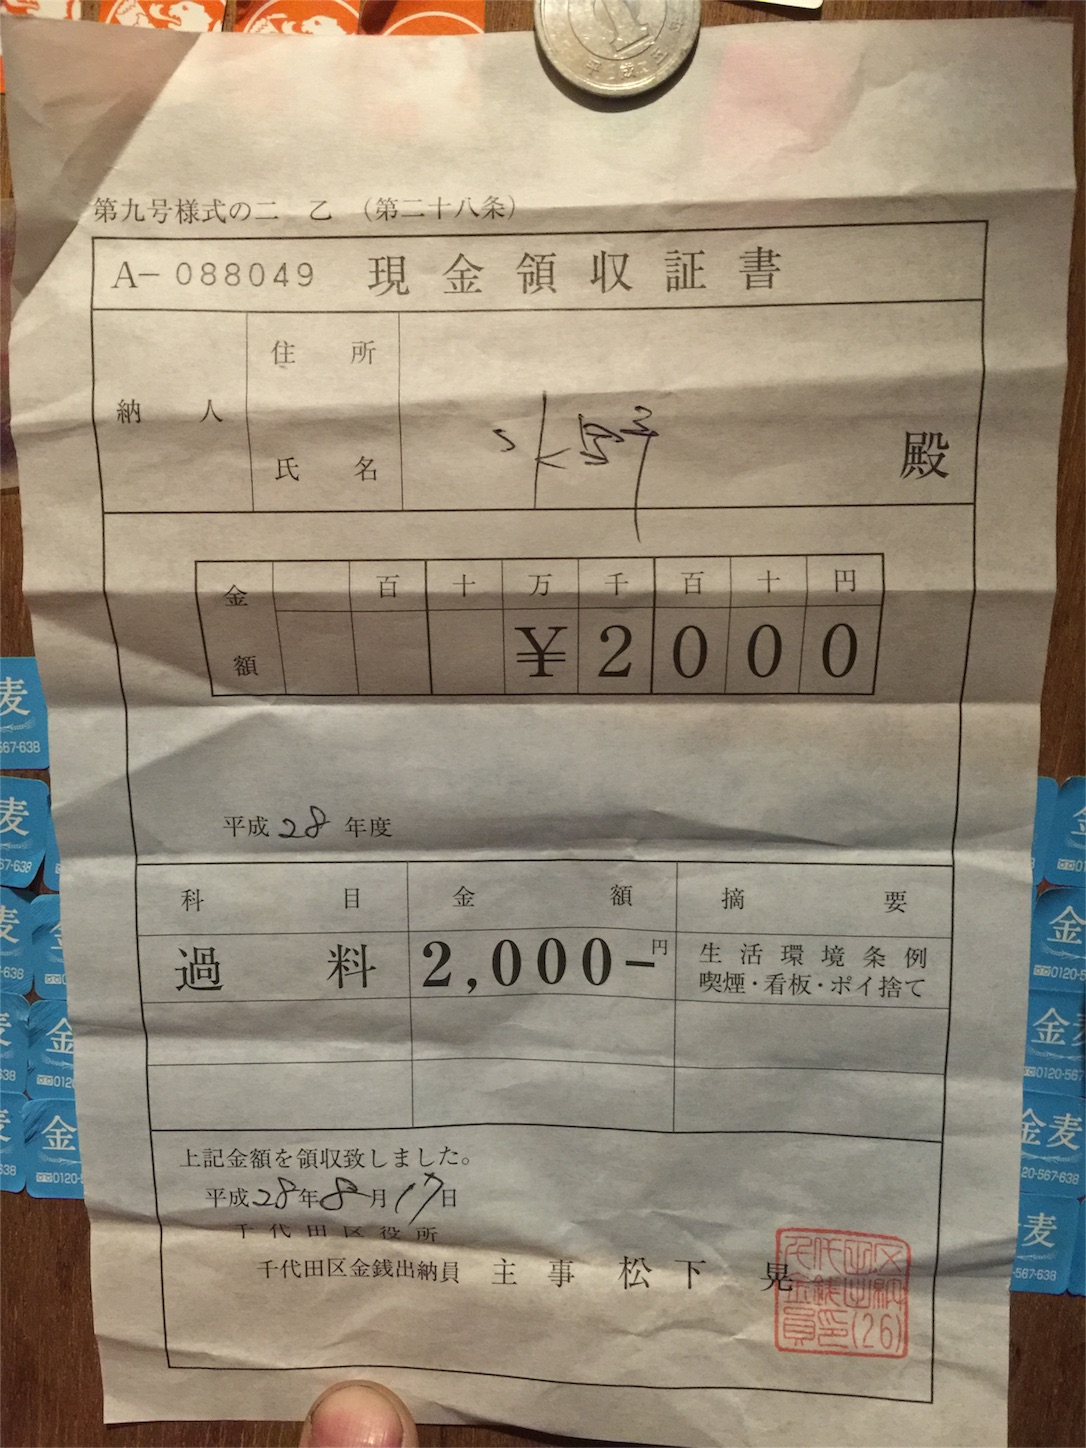 第九号様式の二 乙 (第二十八条)
A-088049 現金領収証書
納人
住所
氏名
殿
金額
百 十 万 千 百 十 円
¥ 2 0 0 0
平成 28 年度
科目 金額 摘要
過料 2,000-円 生活環境条例
喫煙・看板・ポイ捨て
上記金額を領収致しました。
平成28年8月17日
千代田区役所
千代田区金銭出納員 主事 松下 晃
麦
567-638
麦
67-638
麦
金麦
0120-567-638
金麦
0120-567
金麦
0120-567-638
麦
567-638